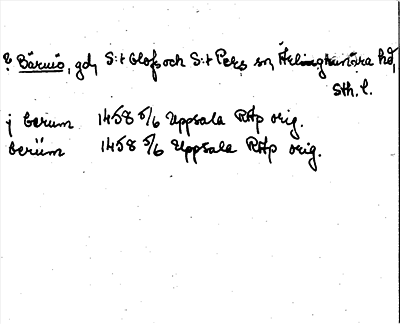 ? Bärmö, gd, S:t Olofs och S:t Pers sn, Ærlinghundra hd,
Sth. l.
j berum 1458 5/6 Uppsala RAp orig.
beriim 1458 5/6 Uppsala RAp orig.